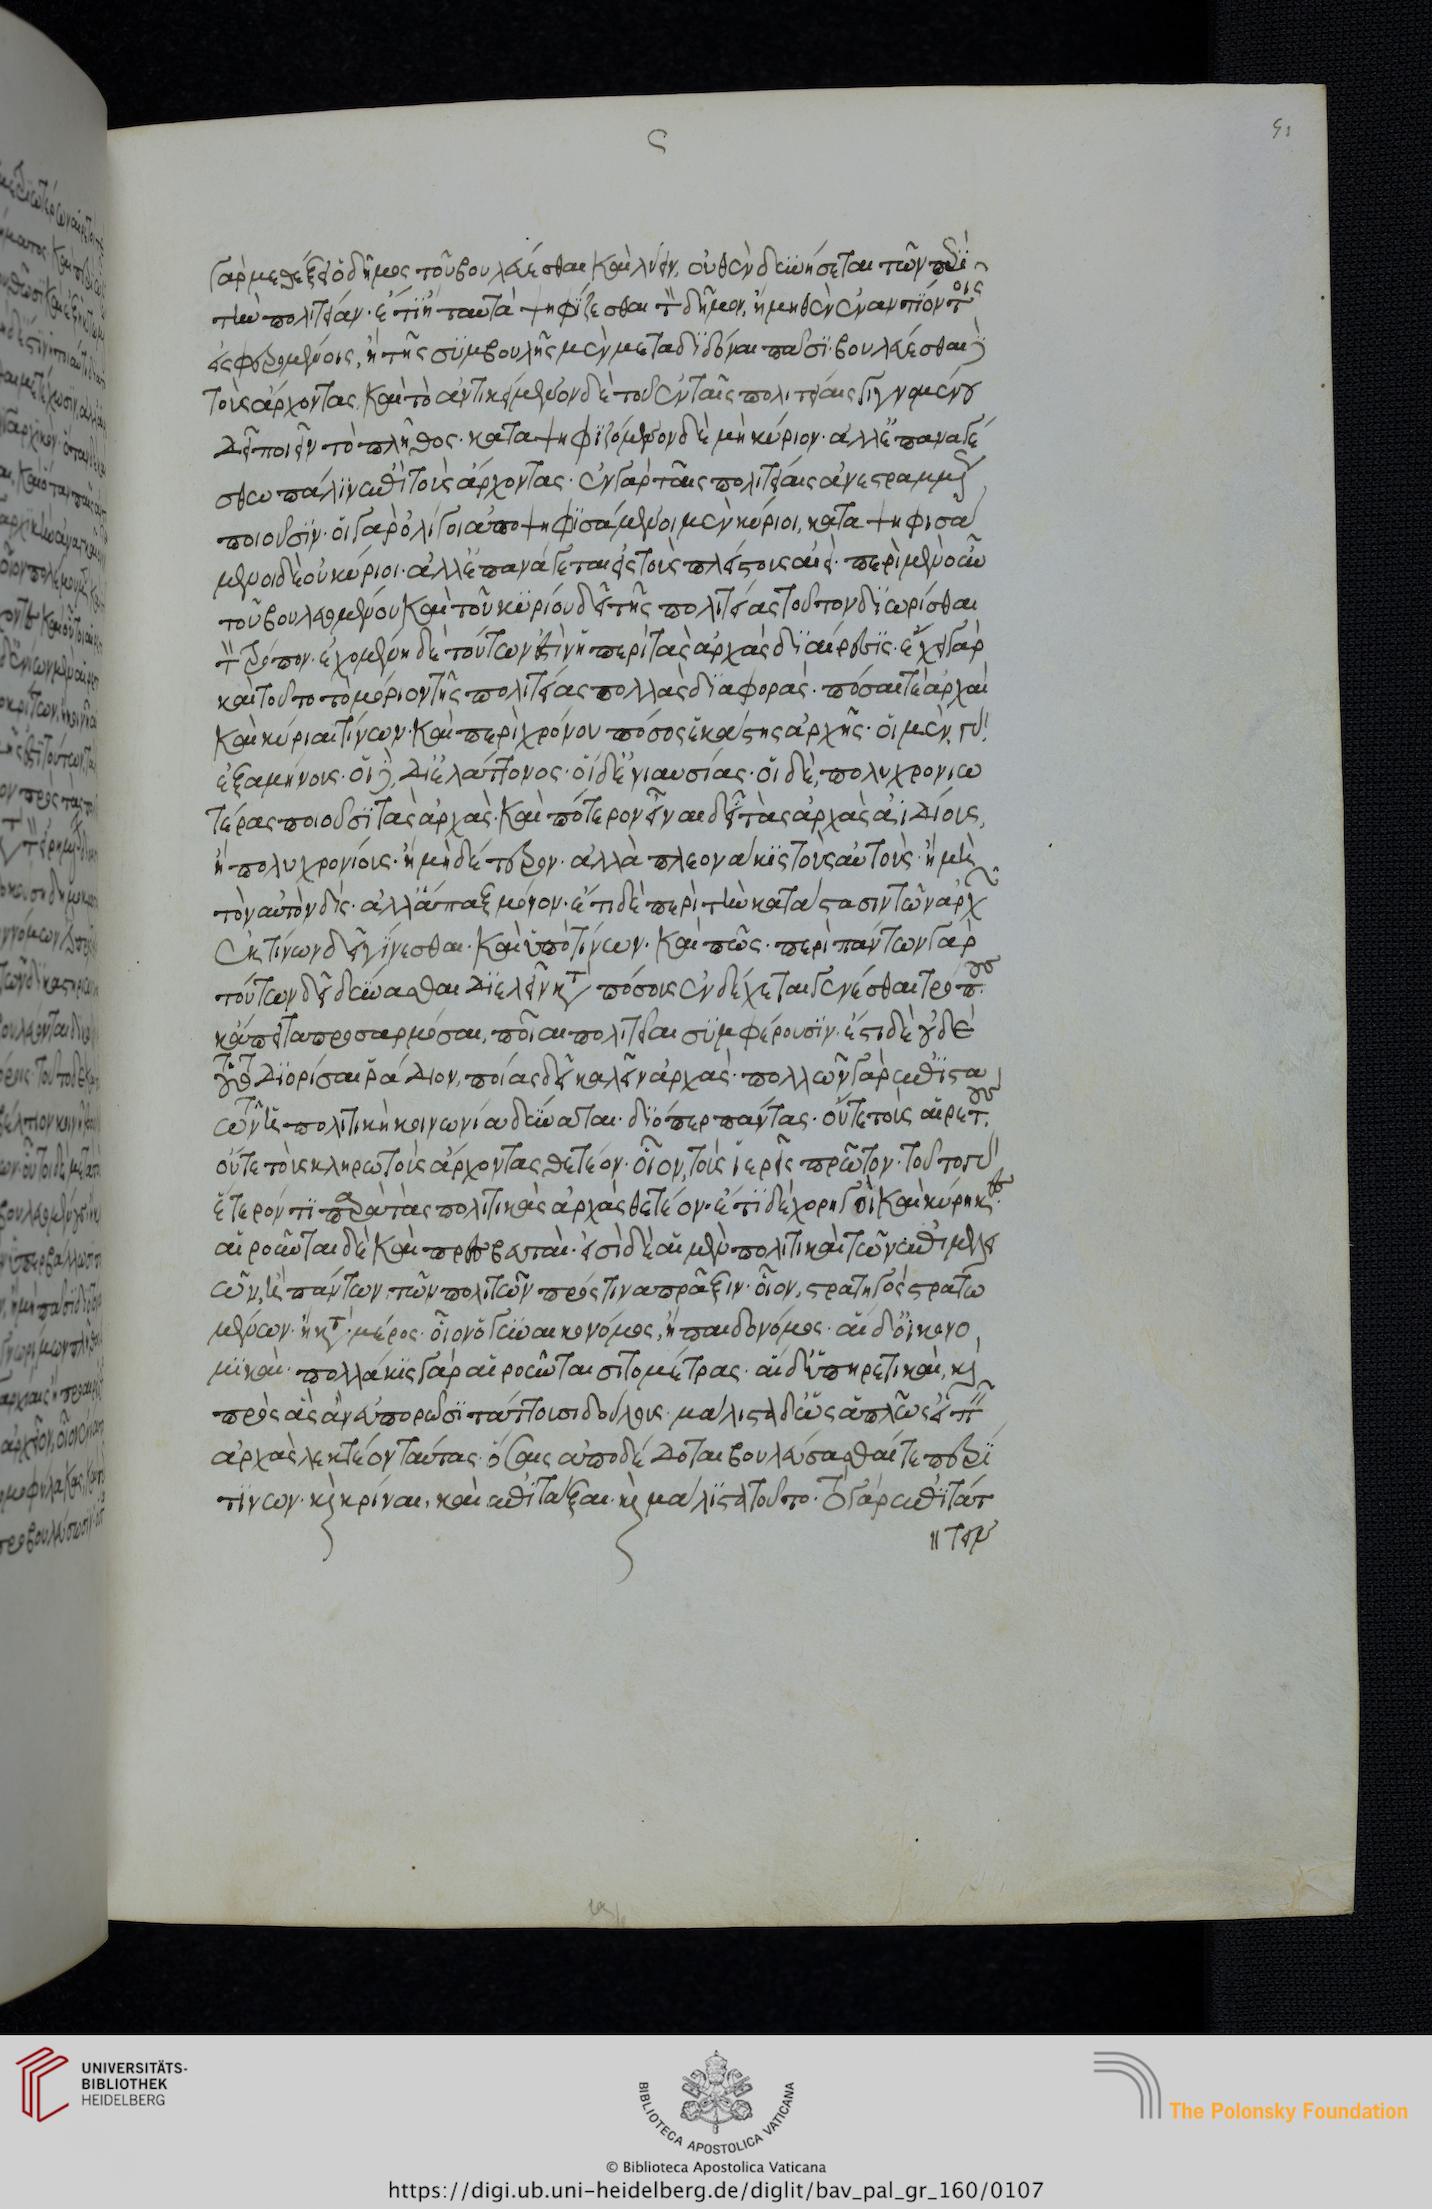 ς
51
γὰρ μεθέξει ὁ δῆμος τοῦ βουλεύεσθαι καὶ λύειν, οὐθὲν δυνήσεται τῶν περὶ
τὴν πολιτείαν· ἔτι ἢ ταυτὰ ψηφίζεσθαι τὸν δῆμον, ἢ μηθὲν ἐναντίον τοῖς
εἰσφερομένοις, ἢ τῆς συμβουλῆς μὲν μεταδιδόναι πᾶσι· βουλεύεσθαι δὲ
τοὺς ἄρχοντας. καὶ τὸ ἀντικείμενον δὲ τοῦ ἐν ταῖς πολιτείαις γιγνομένου
δεῖ ποιεῖν τὸ πλῆθος· καταψηφιζόμενον δὲ μὴ κύριον· ἀλλ' ἐπαναγέ
σθω πάλιν ἐπὶ τοὺς ἄρχοντας· ἐν γὰρ ταῖς πολιτείαις ἀνεστραμμένως
ποιοῦσιν· οἱ γὰρ ὀλίγοι ἀποψηφισάμενοι μὲν κύριοι, καταψηφισά
μενοι δὲ οὐ κύριοι· ἀλλ' ἐπανάγεται εἰς τοὺς πλείστους αἰεί· περὶ μὲν οὖν
τοῦ βουλευομένου καὶ τοῦ κυρίου δεῖ τῆς πολιτείας τοῦτον διωρίσθαι
τὸν τρόπον· ἐχομένη δὲ τούτων ἐστὶν ἡ περὶ τὰς ἀρχὰς διαίρεσις· ἔχει γὰρ
καὶ τοῦτο τὸ μόριον τῆς πολιτείας πολλὰς διαφοράς· πόσαι τὲ ἀρχαὶ
καὶ κύριαι τίνων· καὶ περὶ χρόνου πόσος ἑκάστης ἀρχῆς· οἱ μὲν γὰρ
ἑξαμήνους· οἱ δὲ, δι' ἐλάττονος· οἱ δ' ἐνιαυσίας· οἱ δὲ, πολυχρονιω
τέρας ποιοῦσι τὰς ἀρχὰς· καὶ πότερον εἶναι δεῖ τὰς ἀρχὰς ἀϊδίους,
ἢ πολυχρονίους· ἢ μηδέτερον· ἀλλὰ πλεονάκις τοὺς αὐτοὺς· ἢ μὴ
τὸν αὐτὸν δὶς· ἀλλ' ἅπαξ μόνον· ἔτι δὲ περὶ τὴν κατάστασιν τῶν ἀρχῶν
ἐκ τίνων δεῖ γίνεσθαι· καὶ ὑπὸ τίνων· καὶ πῶς· περὶ πάντων γὰρ
τούτων δεῖ δύνασθαι διελεῖν κατὰ πόσους ἐνδέχεται γενέσθαι τρόπους·
κἄπειτα προσαρμόσαι, ποῖαι πολιτεῖαι συμφέρουσιν· ἔστι δὲ οὐδὲ
τοῦτο διορίσαι ῥάδιον, ποίας δεῖ καλεῖν ἀρχὰς· πολλῶν γὰρ ἐπιστα
τῶν ἡ πολιτικὴ κοινωνία δεῖται· διόπερ πάντας· οὔτε τοὺς αἱρετοὺς·
οὔτε τοὺς κληρωτοὺς ἄρχοντας θετέον· οἷον, τοὺς ἱερεῖς πρῶτον· τοῦτο γὰρ
ἕτερόν τι παρὰ τὰς πολιτικὰς ἀρχὰς θετέον· ἔτι δὲ χορηγοὶ καὶ κήρυκες·
αἱροῦνται δὲ καὶ πρεσβευταὶ· εἰσὶ δὲ αἱ μὲν πολιτικαὶ τῶν ἐπιμελει
ῶν, ἢ πάντων τῶν πολιτῶν πρός τινα πρᾶξιν· οἷον, στρατηγὸς στρατευο
μένων· ἢ κατὰ μέρος· οἷον ὁ γυναικονόμος, ἢ παιδονόμος· αἱ δ' οἰκονο
μικαὶ· πολλάκις γὰρ αἱροῦνται σιτομέτρας· αἱ δ' ὑπηρετικαὶ, καὶ
πρὸς ἃς ἂν εὐπορῶσι τάττουσι δούλους· μάλιστα δ' ὡς ἁπλῶς εἰπεῖν
ἀρχὰς λεκτέον ταύτας· ὅσαις ἀποδέδοται βουλεύσασθαί τε περί
τινων· καὶ κρῖναι, καὶ ἐπιτάξαι· καὶ μάλιστα τοῦτο· τὸ γὰρ ἐπιτάτ
τειν